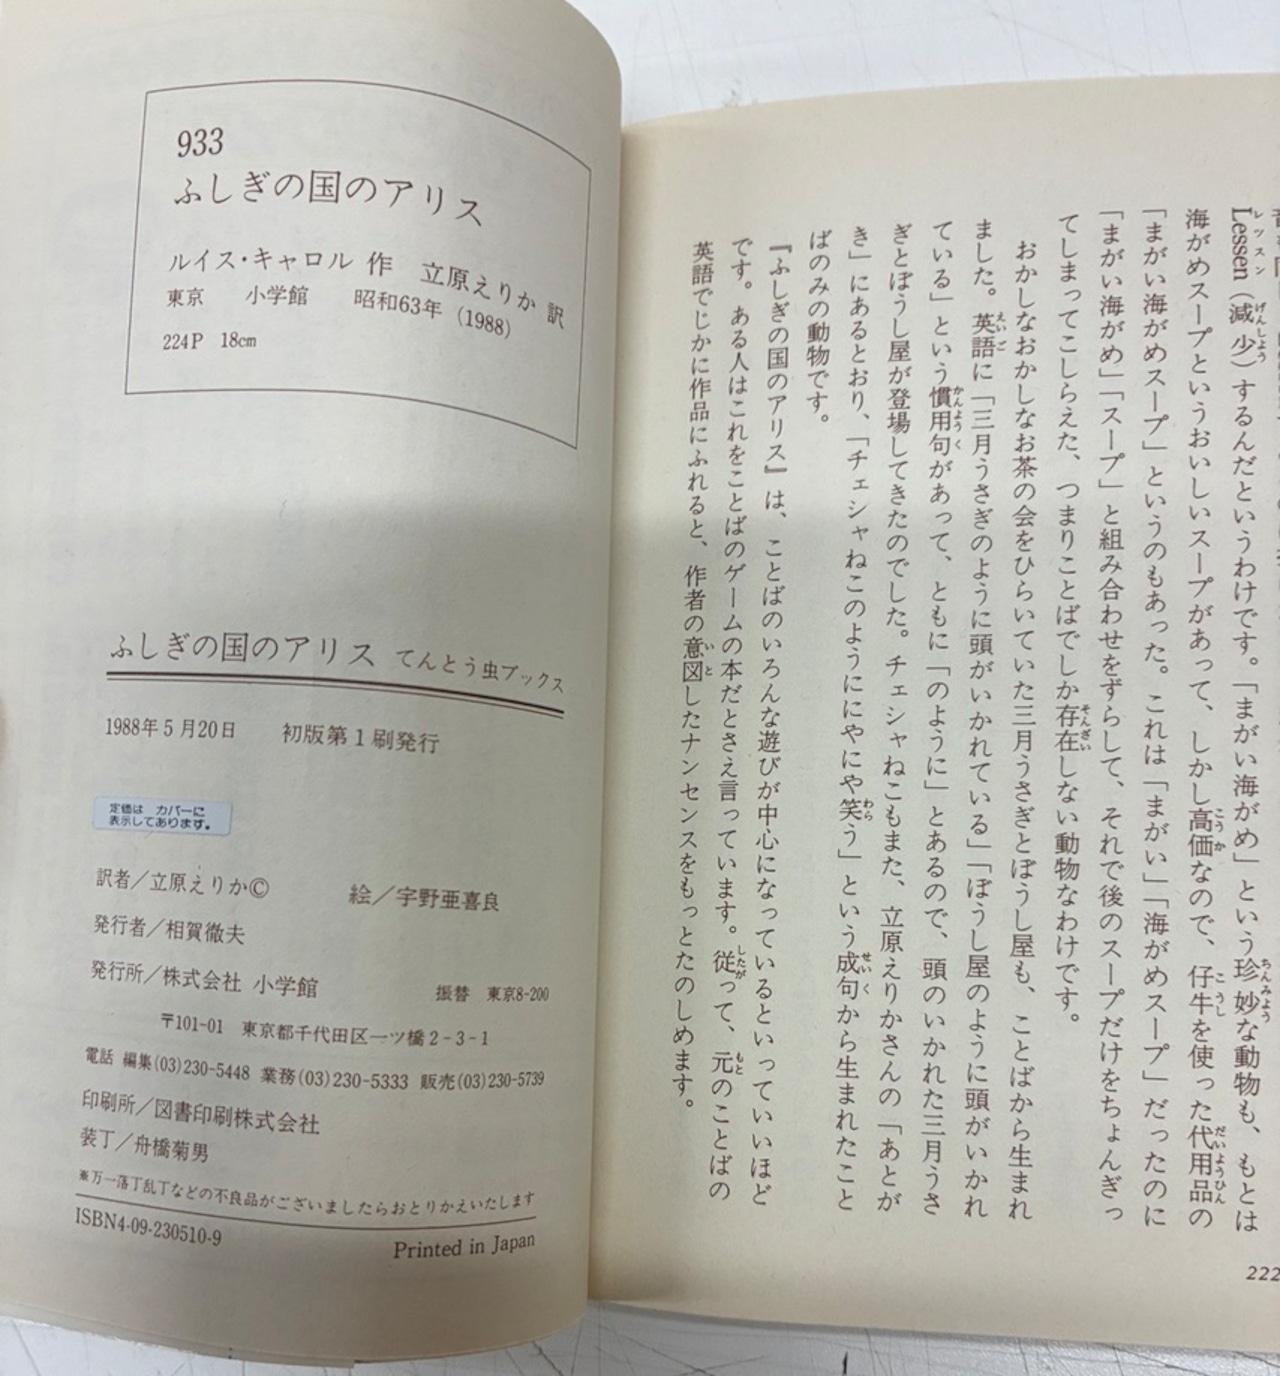 933
ふしぎの国のアリス
ルイス・キャロル 作 立原えりか 訳
東京 小学館 昭和63年 (1988)
224P 18cm
ふしぎの国のアリス てんとう虫ブックス
1988年5月20日 初版第1刷発行
定価は カバーに
表示してあります。
訳者/立原えりか© 絵/宇野亜喜良
発行者/相賀徹夫
発行所/株式会社 小学館 振替 東京8-200
〒101-01 東京都千代田区一ツ橋2-3-1
電話 編集(03)230-5448 業務(03)230-5333 販売(03)230-5739
印刷所/図書印刷株式会社
装丁/舟橋菊男
※万一落丁乱丁などの不良品がございましたらおとりかえいたします
ISBN4-09-230510-9 Printed in Japan
Lessen(減少)するんだというわけです。「まがい海がめ」という珍妙な動物も、もとは
海がめスープというおいしいスープがあって、しかし高価なので、仔牛を使った代用品の
「まがい海がめスープ」というのもあった。これは「まがい」「海がめスープ」だったのに
「まがい海がめ」「スープ」と組み合わせをずらして、それで後のスープだけをちょんぎっ
てしまってこしらえた、つまりことばでしか存在しない動物なわけです。
おかしなおかしなお茶の会をひらいていた三月うさぎとぼうし屋も、ことばから生まれ
ました。英語に「三月うさぎのように頭がいかれている」「ぼうし屋のように頭がいかれ
ている」という慣用句があって、ともに「のように」とあるので、頭のいかれた三月うさ
ぎとぼうし屋が登場してきたのでした。チェシャねこもまた、立原えりかさんの「あとが
き」にあるとおり、「チェシャねこのようににやにや笑う」という成句から生まれたこと
ばのみの動物です。
『ふしぎの国のアリス』は、ことばのいろんな遊びが中心になっているといっていいほど
です。ある人はこれをことばのゲームの本だとさえ言っています。従って、元のことばの
英語でじかに作品にふれると、作者の意図したナンセンスをもっとたのしめます。
222